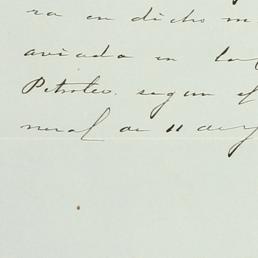 ra en dicho m
aviada en la
Petroleo. segun el
neral de 11 de